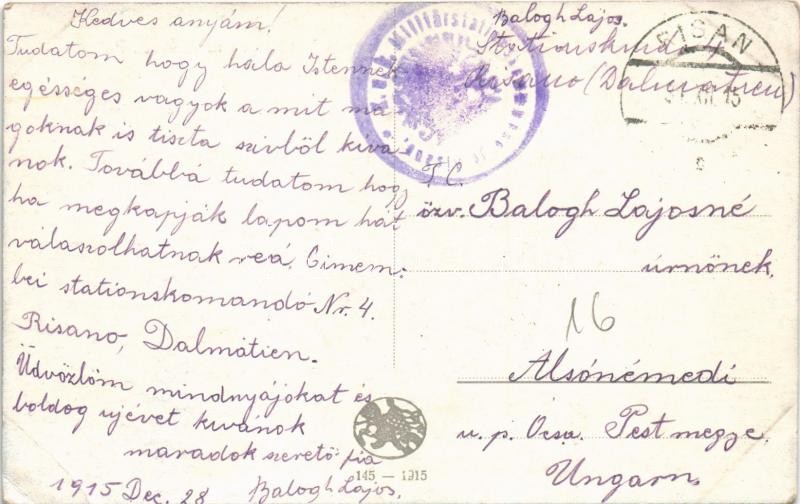 Kedves anyám!
Tudatom hogy hála Istennek
egésséges vagyok a mit ma
goknak is tiszta szivből kivá
nok. Továbbá tudatom hogy
ha megkapják lapom hát
válaszolhatnak reá. Cimem:
bei stationskomandó Nr. 4.
Risano, Dalmátien.
Üdvözlöm mindnyájókat és
boldog ujévet kivánok
maradok szerető fia
1915 Dec. 28 Balogh Lajos.
145 — 1915
Balogh Lajos.
Risano (Dalmatien)
RISAN
XII. 15
T. C.
özv. Balogh Lajosné
úrnőnek.
16
Alsónémedi
u. p. Ocsa. Pest megye.
Ungarn.